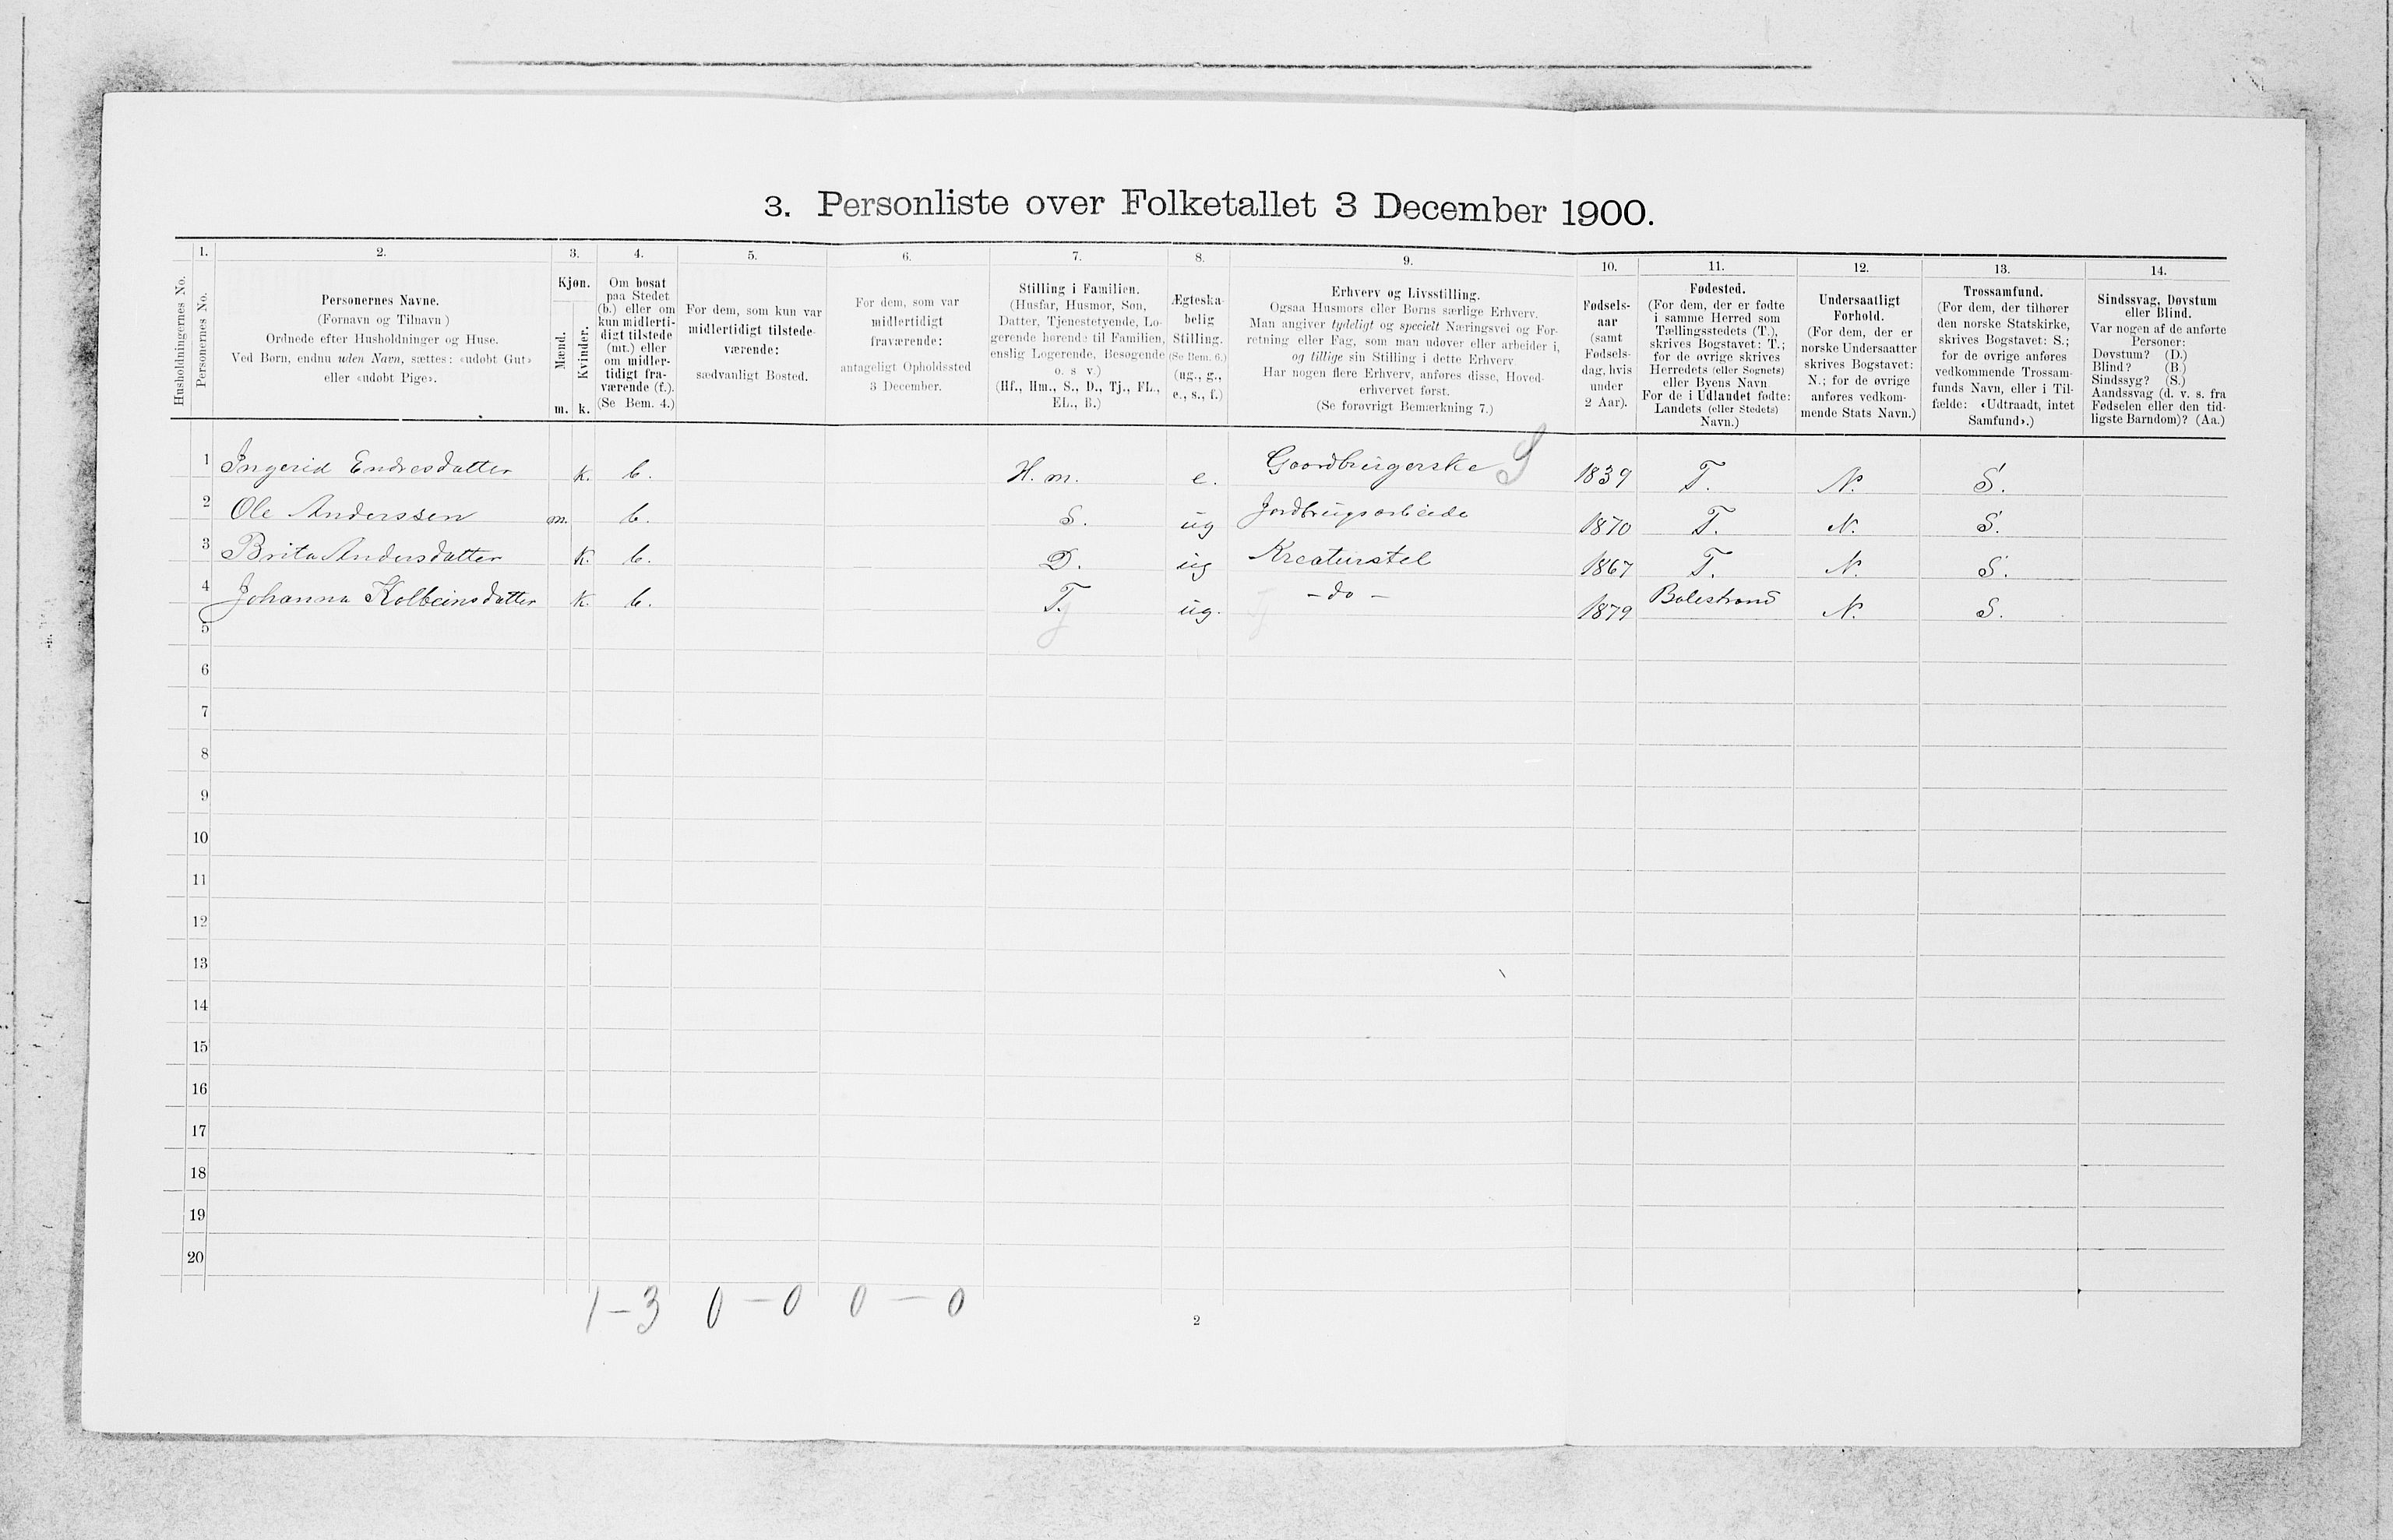 3. Personliste over Folketallet 3 December 1900.
1. 2. 3. 4. 5. 6. 7. 8. 9. 10. 11. 12. 13. 14.
Husholdningernes No.
Personernes No.
Personernes Navne.
(Fornavn og Tilnavn)
Ordnede efter Husholdninger og Huse.
Ved Børn, endnu uden Navn, sættes: «udøbt Gut»
eller «udøbt Pige».
Kjøn.
Mænd.
Kvinder.
m. k.
Om bosat
paa Stedet
(b.) eller om
kun midlerti-
digt tilstede
(mt.) eller
om midler-
tidigt fra-
værende (f.).
(Se Bem. 4.)
For dem, som kun var
midlertidigt tilstede-
værende:
sædvanligt Bosted.
For dem, som var
midlertidigt
fraværende:
antageligt Opholdssted
3 December.
Stilling i Familien.
(Husfar, Husmor, Søn,
Datter, Tjenestetyende, Lo-
gerende hørende til Familien,
enslig Logerende, Besøgende
o. s v.)
(Hf., Hm., S., D., Tj., FL.,
EL., B.)
Ægteska-
belig
Stilling.
(Se Bem. 6.)
(ug., g.,
e., s., f.)
Erhverv og Livsstilling.
Ogsaa Husmors eller Børns særlige Erhverv.
Man angiver tydeligt og specielt Næringsvei og For-
retning eller Fag, som man udøver eller arbeider i,
og tillige sin Stilling i dette Erhverv.
Har nogen flere Erhverv, anføres disse, Hoved-
erhvervet først.
(Se forøvrigt Bemærkning 7.)
Fødsels-
aar
(samt
Fødsels-
dag, hvis
under
2 Aar).
Fødested.
(For dem, der er fødte
i samme Herred som
Tællingsstedets (T.),
skrives Bogstavet: T.;
for de øvrige skrives
Herredets (eller Sognets)
eller Byens Navn
For de i Udlandet fødte:
Landets (eller Stedets)
Navn.)
Undersaatligt
Forhold.
(For dem, der er
norske Undersaatter
skrives Bogstavet:
N.; for de øvrige
anføres vedkom-
mende Stats Navn.)
Trossamfund.
(For dem, der tilhører
den norske Statskirke,
skrives Bogstavet: S.;
for de øvrige anføres
vedkommende Trossam-
funds Navn, eller i Til-
fælde: «Udtraadt, intet
Samfund».)
Sindssvag, Døvstum
eller Blind.
Var nogen af de anførte
Personer:
Døvstum? (D.)
Blind? (B.)
Sindssyg? (S.)
Aandssvag (d. v. s. fra
Fødselen eller den tid-
ligste Barndom)? (Aa.)
1 Ingerid Endresdatter k. b. H. m. e. Gaardbrugerske S 1839 T. N. S.
2 Ole Anderssen m. b. S. ug Jordbrugsarbeide 1870 T. N. S.
3 Brita Andersdatter k. b. D. ug Kreaturstel 1867 T. N. S.
4 Johanna Kolbeinsdatter k. b. T. j ug. - do - Tj 1879 Balestrand N. S.
5
6
7
8
9
10
11
12
13
14
15
16
17
18
19
20
1 - 3 0 - 0 0 - 0
2